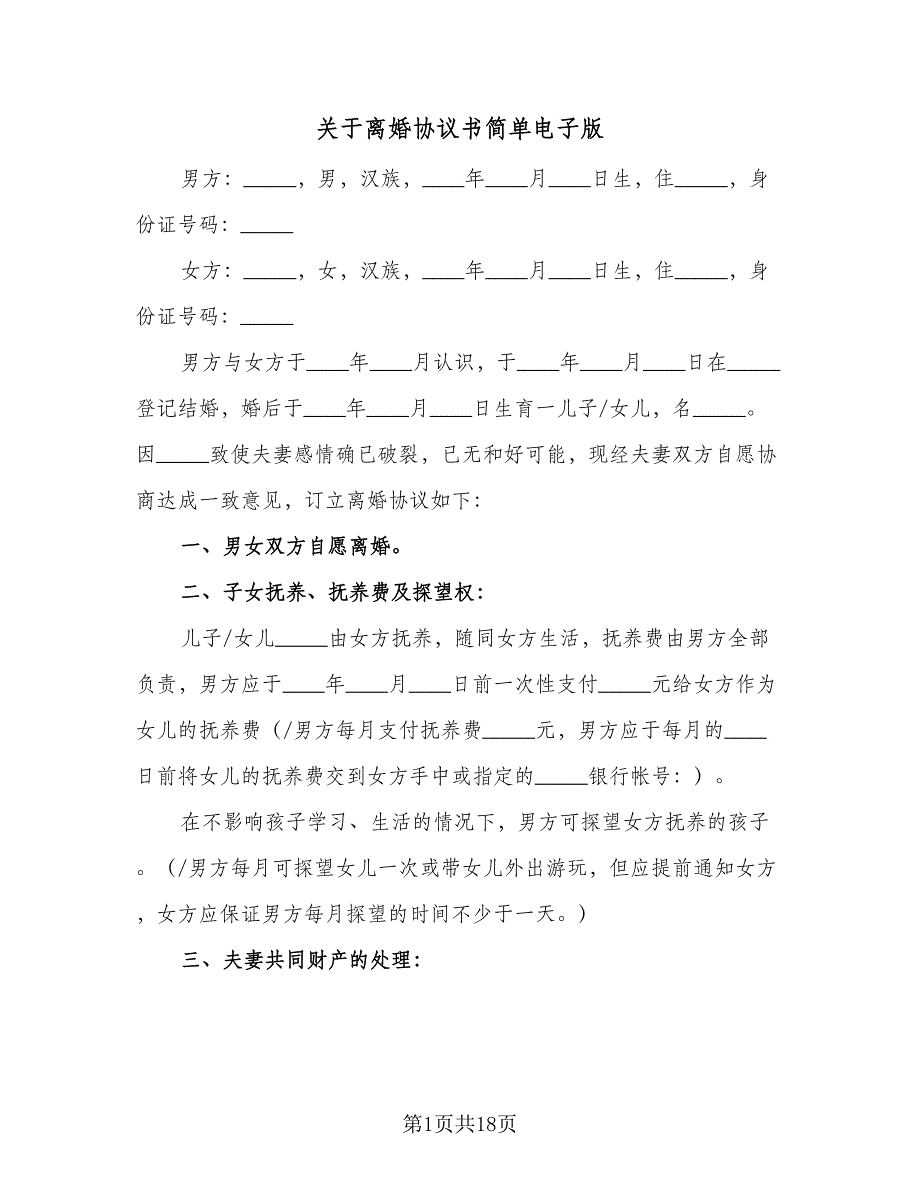 关于离婚协议书简单电子版
男方：_____，男，汉族，____年____月____日生，住_____，身
份证号码：_____
女方：_____，女，汉族，____年____月____日生，住_____，身
份证号码：_____
男方与女方于____年____月认识，于____年____月____日在_____
登记结婚，婚后于____年____月____日生育一儿子/女儿，名_____。
因_____致使夫妻感情确已破裂，已无和好可能，现经夫妻双方自愿协
商达成一致意见，订立离婚协议如下：
一、男女双方自愿离婚。
二、子女抚养、抚养费及探望权：
儿子/女儿_____由女方抚养，随同女方生活，抚养费由男方全部
负责，男方应于____年____月____日前一次性支付_____元给女方作为
女儿的抚养费（/男方每月支付抚养费_____元，男方应于每月的____
日前将女儿的抚养费交到女方手中或指定的_____银行帐号：）。
在不影响孩子学习、生活的情况下，男方可探望女方抚养的孩子
。（/男方每月可探望女儿一次或带女儿外出游玩，但应提前通知女方
，女方应保证男方每月探望的时间不少于一天。）
三、夫妻共同财产的处理：
第1页共18页